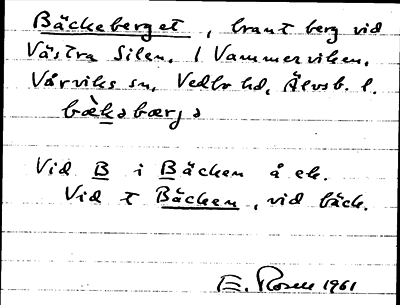 Bäckeberget, brant berg vid
Västra Silen, i Vammerviken.
Vårviks sn, Vedbo hd, Älvsb. l.
bæ̀kəbærjə
Vid B i Bäcken å ek.
Vid t Bäcken, vid bäck.
E. Rosell 1961